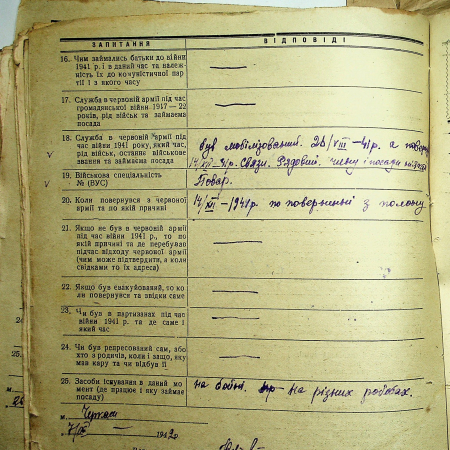 ЗАПИТАННЯ ВІДПОВІДІ
16. Чим займались батьки до війни
1941 р. і в даний час та належ-
ність їх до комуністичної пар-
тії і з якого часу
17. Служба в червоній армії під час
громадянської війни 1917 — 22
років, рід військ та займаєма
посада
18. Служба в червоній армії під час
війни 1941 року, який час,
рід військ, останнє військове
звання та займаєма посада
був мобілізований. 28/VIII—41р. а
14/XII—41р. Рядовий,
v
19. Військова спеціальність
№ (ВУС)
Повар.
v
20. Коли повернувся з червоної
армії та по якій причині
14/XII—1941р. по поверненні з полону
21. Якщо не був в червоній армії
під час війни 1941 р., то по
якій причині та де перебував
під час відходу червоної армії
(чим може підтвердити, а коли
свідками то їх адреса)
22. Якщо був евакуйований, то ко-
ли повернувся та звідки саме
23. Чи був в партизанах під час
війни 1941 р. та де саме і
який час
24. Чи був репресований сам, або
хто з родичів, коли і защо, яку
мав кару та чи відбув її
25. Засоби існування в даний мо-
мент (де працює і яку займає
посаду)
на різних роботах.
м. Черкаси
1942р.